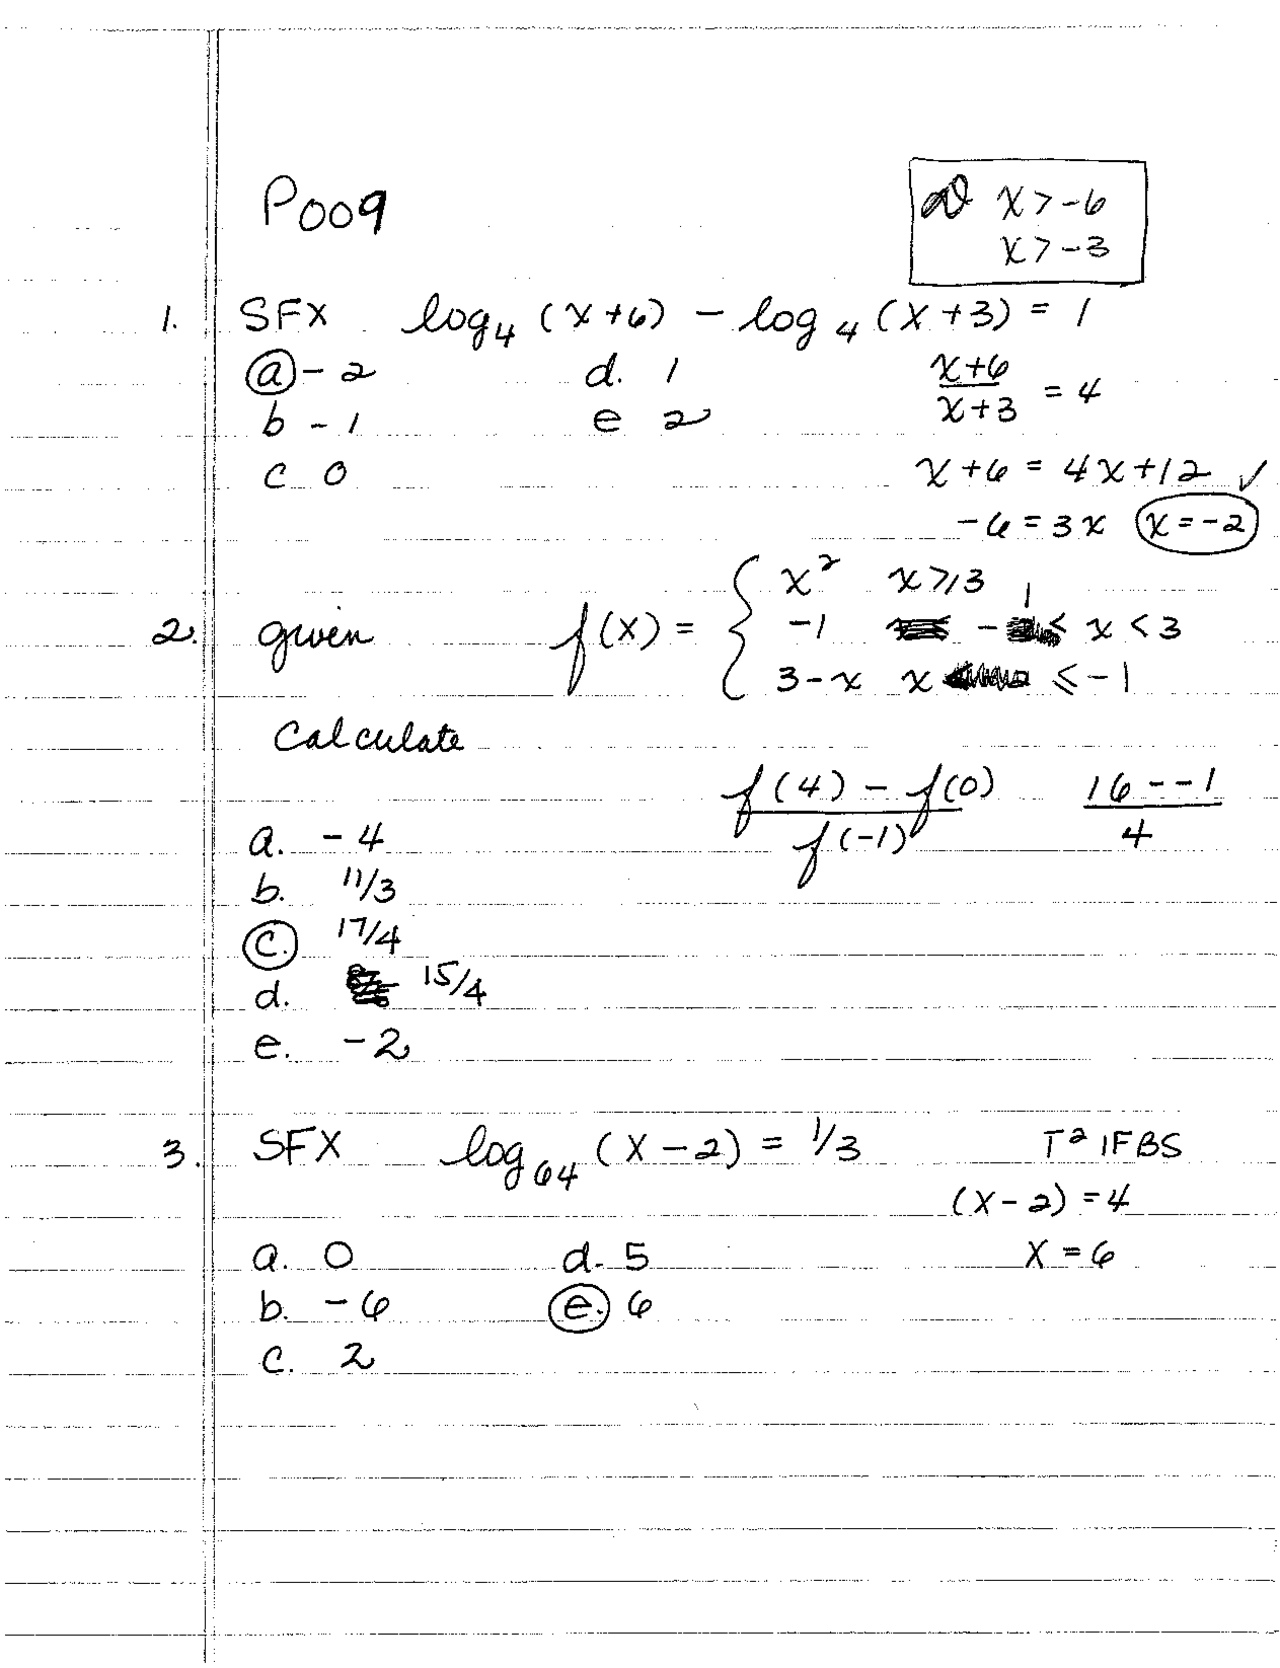 P009
x > -6
x > -3
1. SFX log₄ (x+6) - log₄ (x+3) = 1
a - 2 d. 1
b - 1 e 2
c 0
x+6 / x+3 = 4
x+6 = 4x+12 ✓
-6 = 3x x = -2
2. given f(x) = { x² x ≥ 3
-1 -1 ≤ x < 3
3-x x ≤ -1
Calculate
f(4) - f(0) / f(-1) 16 - -1 / 4
a. -4
b. 11/3
c. 17/4
d. 15/4
e. -2
3. SFX log₆₄ (x-2) = 1/3 T² IFBS
(x-2) = 4
x = 6
a. 0 d. 5
b. -6 e. 6
c. 2